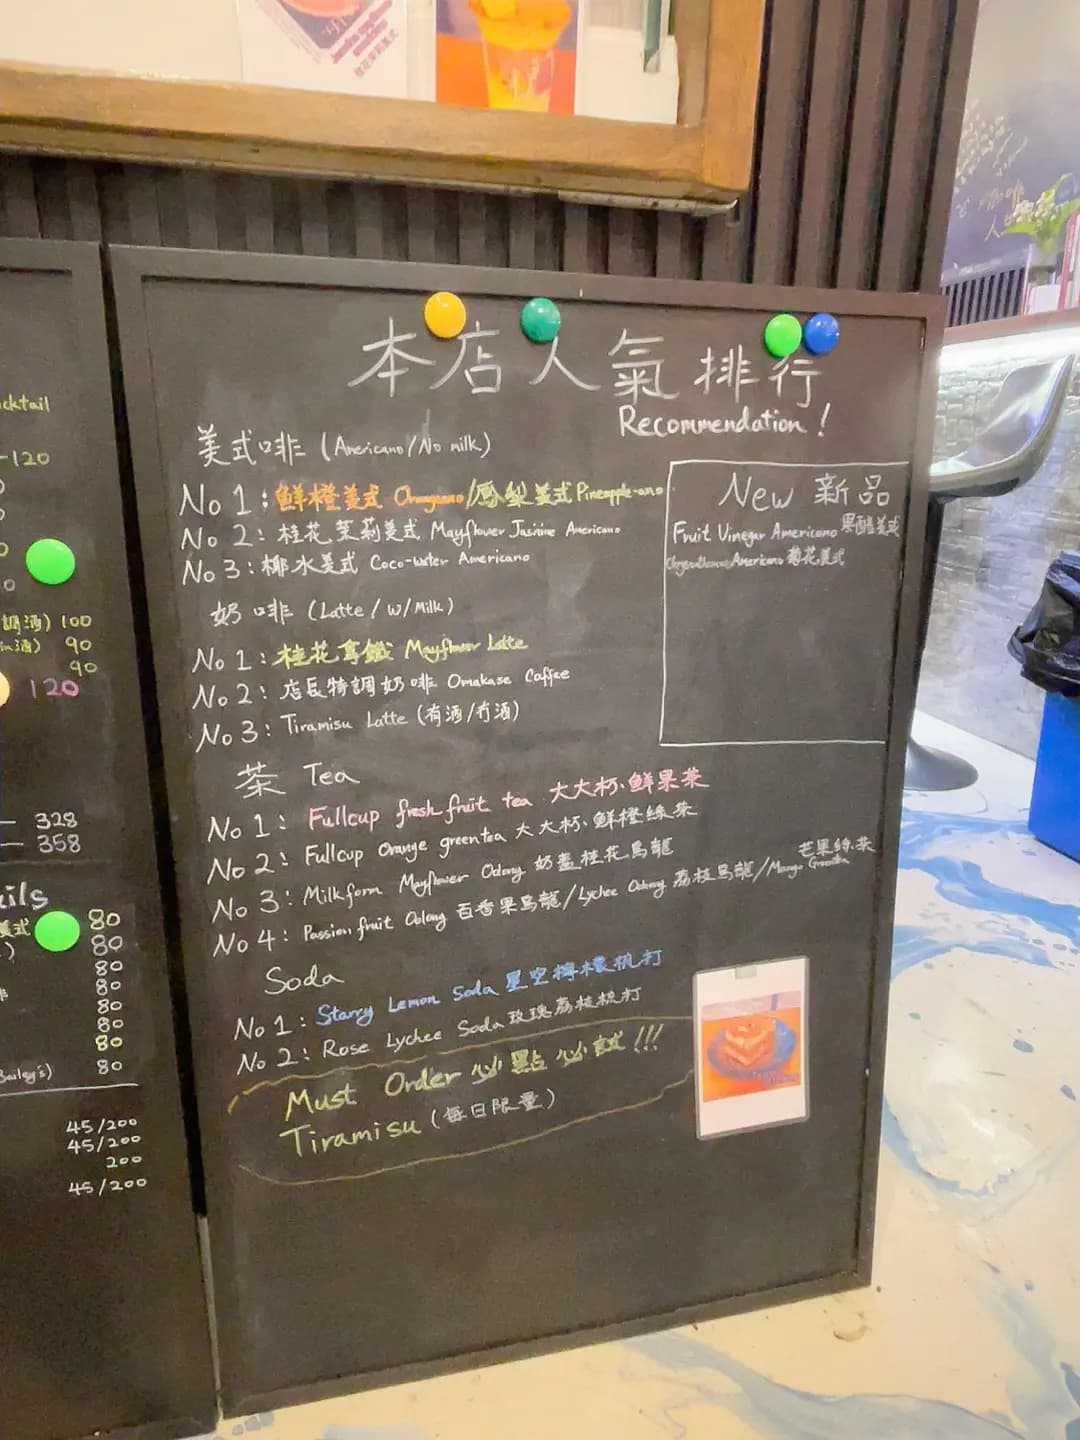 cktail
-120
調酒) 100
90
90
120
328
358
ils
美式 80
80
80
80
80
80
80
Bailey's) 80
45/200
45/200
200
45/200
本店人氣排行
Recommendation!
美式啡 (Americano/No milk)
No 1: 鮮橙美式 Orangeano/鳳梨美式 Pineapple-ano
No 2: 桂花茉莉美式 Mayflower Jasmine Americano
No 3: 椰水美式 Coco-water Americano
奶啡 (Latte / w/Milk)
No 1: 桂花拿鐵 Mayflower Latte
No 2: 店長特調奶啡 Omakase Coffee
No 3: Tiramisu Latte (有酒/冇酒)
茶 Tea
No 1: Fullcup fresh fruit tea 大大杯、鮮果茶
No 2: Fullcup Orange greentea 大大杯、鮮橙綠茶
No 3: Milkform Mayflower Oolong 奶蓋桂花烏龍
No 4: Passion fruit Oolong 百香果烏龍/Lychee Oolong 荔枝烏龍/Mango Greentea 芒果綠茶
Soda
No 1: Starry Lemon Soda 星空檸檬梳打
No 2: Rose Lychee Soda 玫瑰荔枝梳打
Must Order 必點必試!!!
Tiramisu (每日限量)
New 新品
Fruit Vinegar Americano 果醋美式
Americano 菊花美式